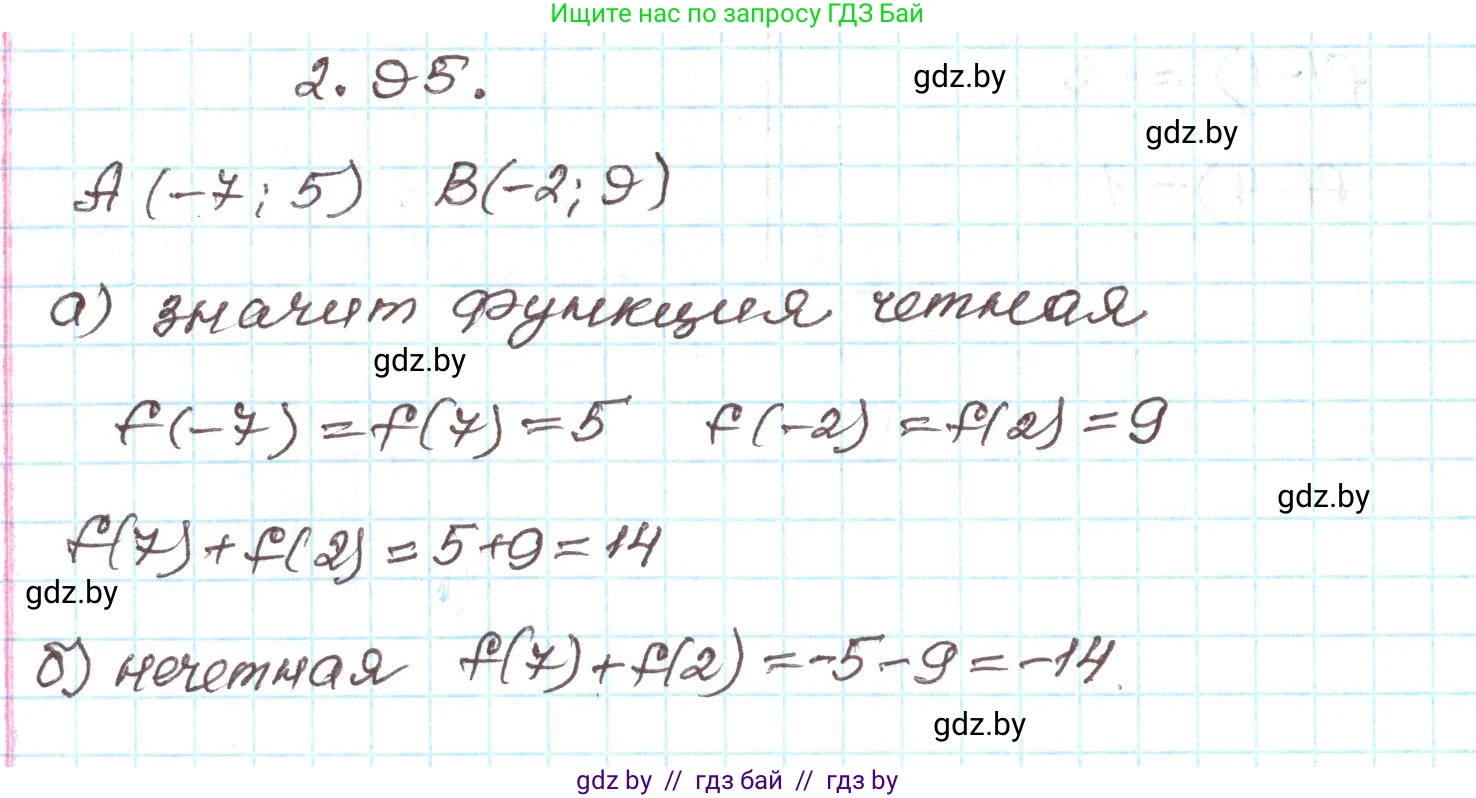 Ищите нас по запросу ГДЗ Бай
2.95.
gdz.by
gdz.by
A (-7; 5) B(-2; 9)
а) значит функция четная
gdz.by
f(-7) = f(7) = 5 f(-2) = f(2) = 9
gdz.by
f(7) + f(2) = 5+9 = 14
gdz.by
б) нечетная f(7) + f(2) = -5 - 9 = -14
gdz.by
gdz by // гдз бай // гдз by